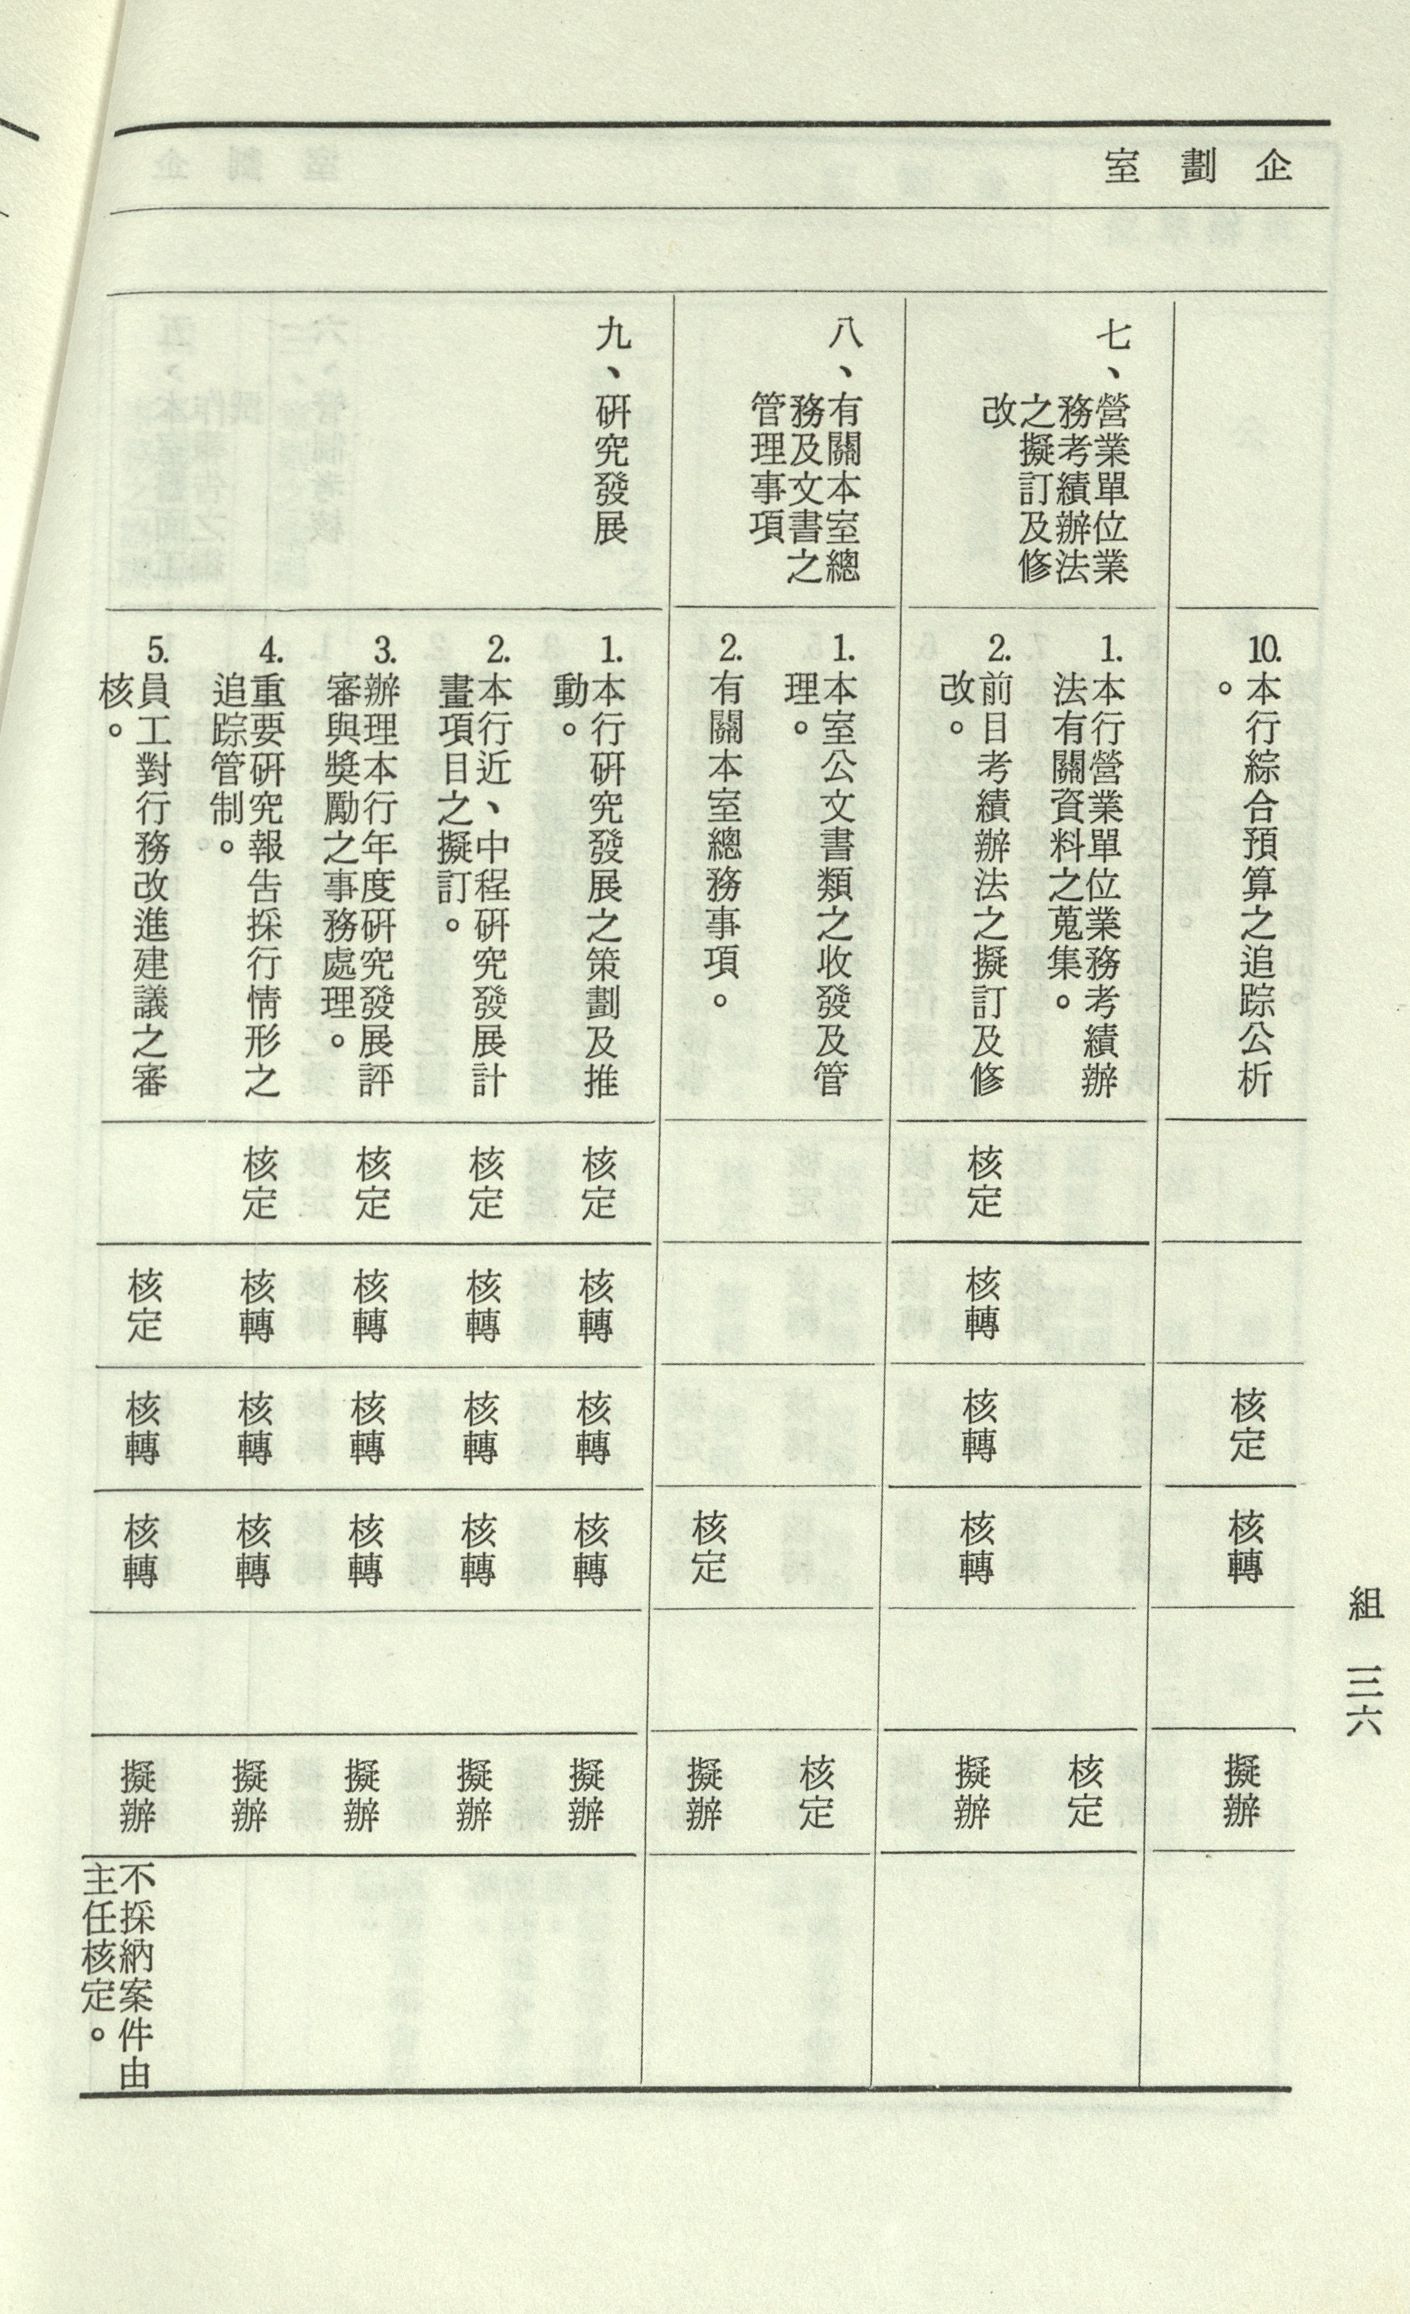 企劃室
10.本行綜合預算之追踪公析
。
核定
核轉
擬辦
七、營業單位業
務考績辦法
之擬訂及修
改
1.本行營業單位業務考績辦
法有關資料之蒐集。
核定
2.前目考績辦法之擬訂及修
改。
核定
核轉
核轉
核轉
擬辦
八、有關本室總
務及文書之
管理事項
1.本室公文書類之收發及管
理。
核定
2.有關本室總務事項。
核定
擬辦
九、研究發展
1.本行研究發展之策劃及推
動。
核定
核轉
核轉
核轉
擬辦
2.本行近、中程研究發展計
畫項目之擬訂。
核定
核轉
核轉
核轉
擬辦
3.辦理本行年度研究發展評
審與獎勵之事務處理。
核定
核轉
核轉
核轉
擬辦
4.重要研究報告採行情形之
追踪管制。
核定
核轉
核轉
核轉
擬辦
5.員工對行務改進建議之審
核。
核定
核轉
核轉
擬辦
不採納案件由
主任核定。
組 三六